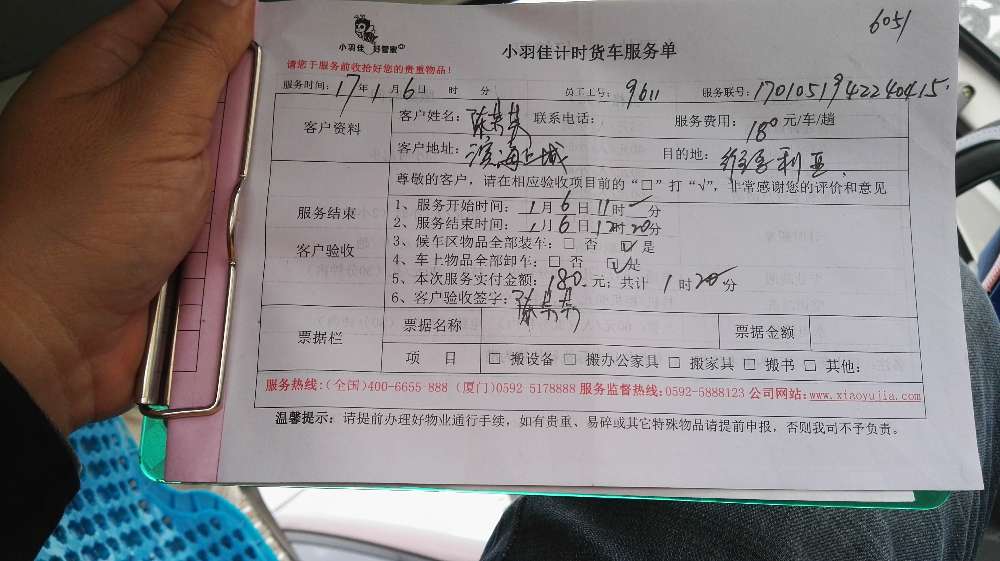 6051
小羽佳 好管家
小羽佳计时货车服务单
请您于服务前收拾好您的贵重物品!
服务时间: 17年 1月 6日 时 分 员工工号: 9611 服务联号: 1701051942240415
客户资料 客户姓名: 联系电话: 服务费用: 180元/车/趟
客户地址: 滨海上城 目的地: 维多利亚
尊敬的客户,请在相应验收项目前的“□”打“√”,非常感谢您的评价和意见
服务结束
客户验收
1、服务开始时间: 1月 6日 11时 分
2、服务结束时间: 1月 6日 12时 20分
3、候车区物品全部装车: □ 否 ☑ 是
4、车上物品全部卸车: □ 否 ☑ 是
5、本次服务实付金额: 180 元; 共计 1 时 20 分
6、客户验收签字:
票据栏 票据名称 票据金额
项 目 □ 搬设备 □ 搬办公家具 □ 搬家具 □ 搬书 □ 其他:
服务热线:(全国)400-6655-888 (厦门)0592 5178888 服务监督热线:0592-5888123 公司网站:www.xiaoyujia.com
温馨提示: 请提前办理好物业通行手续,如有贵重、易碎或其它特殊物品请提前申报,否则我司不予负责。